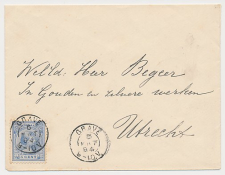 WelEd. Heer Begeer
In Gouden en zilvere werken
Utrecht
GRAVE
5
94
GRAVE
5
94